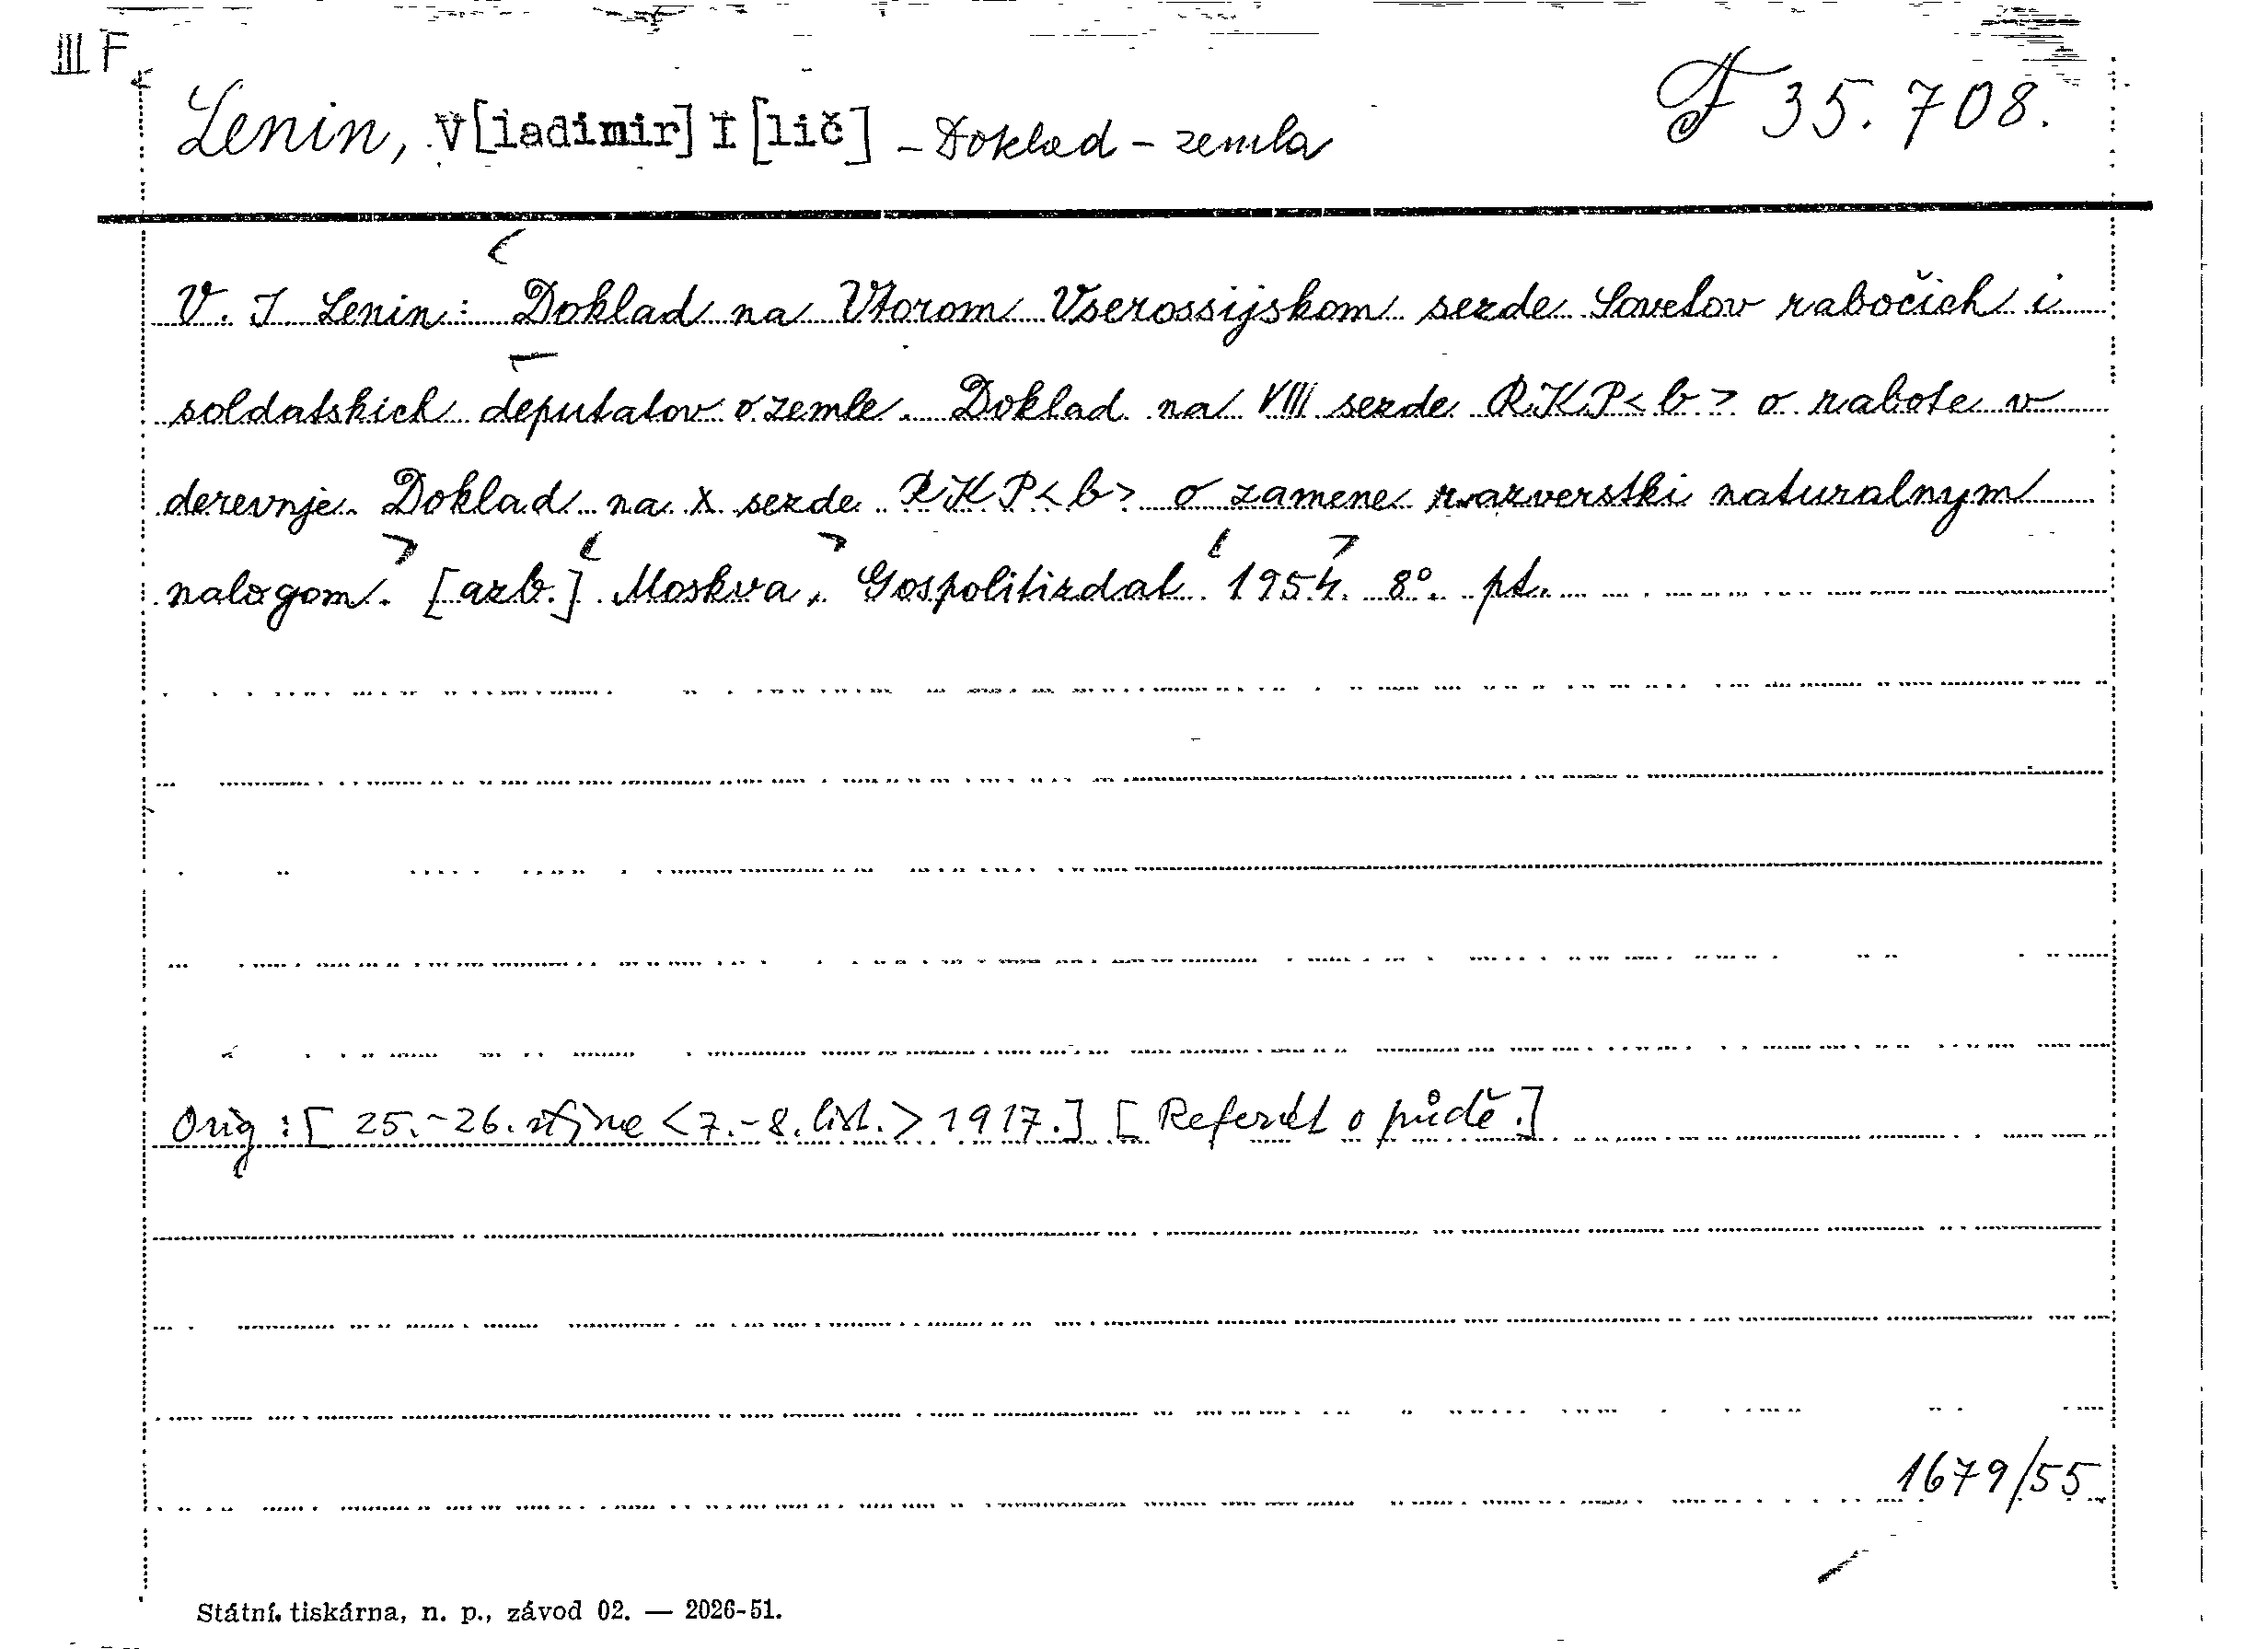 III F
Lenin, V[ladimir] I[lič] – Doklad – zemla
F 35.708.
V. I Lenin: Doklad na Vtorom Vserossijskom sezde Sovetov rabočich i
soldatskich deputatov o zemle. Doklad na VIII sezde RKP<b> o rabote v
derevnje. Doklad na X sezde RKP<b> o zamene razverstki naturalnym
nalogom. [azb.] Moskva, Gospolitizdat 1954. 8°. pt.
Orig: [25.-26. října <7.-8. list.> 1917.] [Referát o půdě.]
1679/55
Státní tiskárna, n. p., závod 02. — 2026-51.